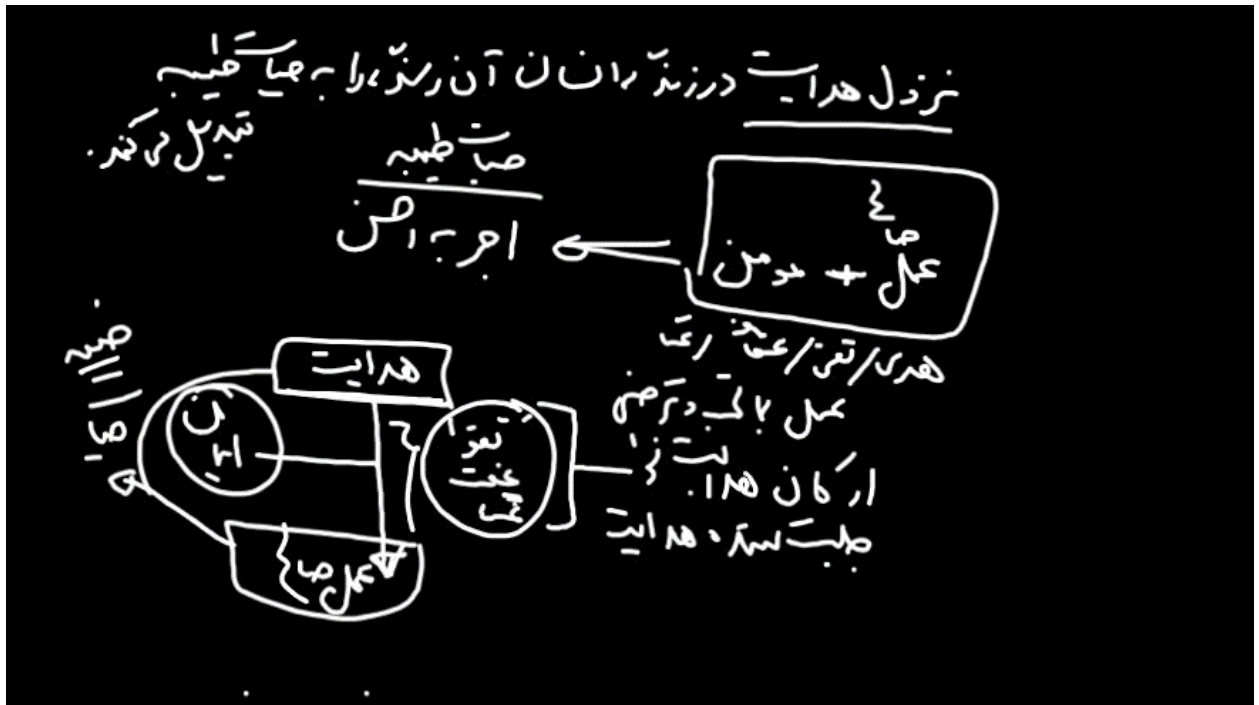 نزول هدایت در زندگی انسان آن زندگی را به حیات طیبه
تبدیل می‌کند.
حیات طیبه
اجر به احسن
عمل صا + مومن
هدی / تقی / عفاف / غنا
عمل با
ارکان هدایت
طلب هدایت
هدایت
ایمان
تقو
عفت
غنا
عمل صا
حیا
طیبه